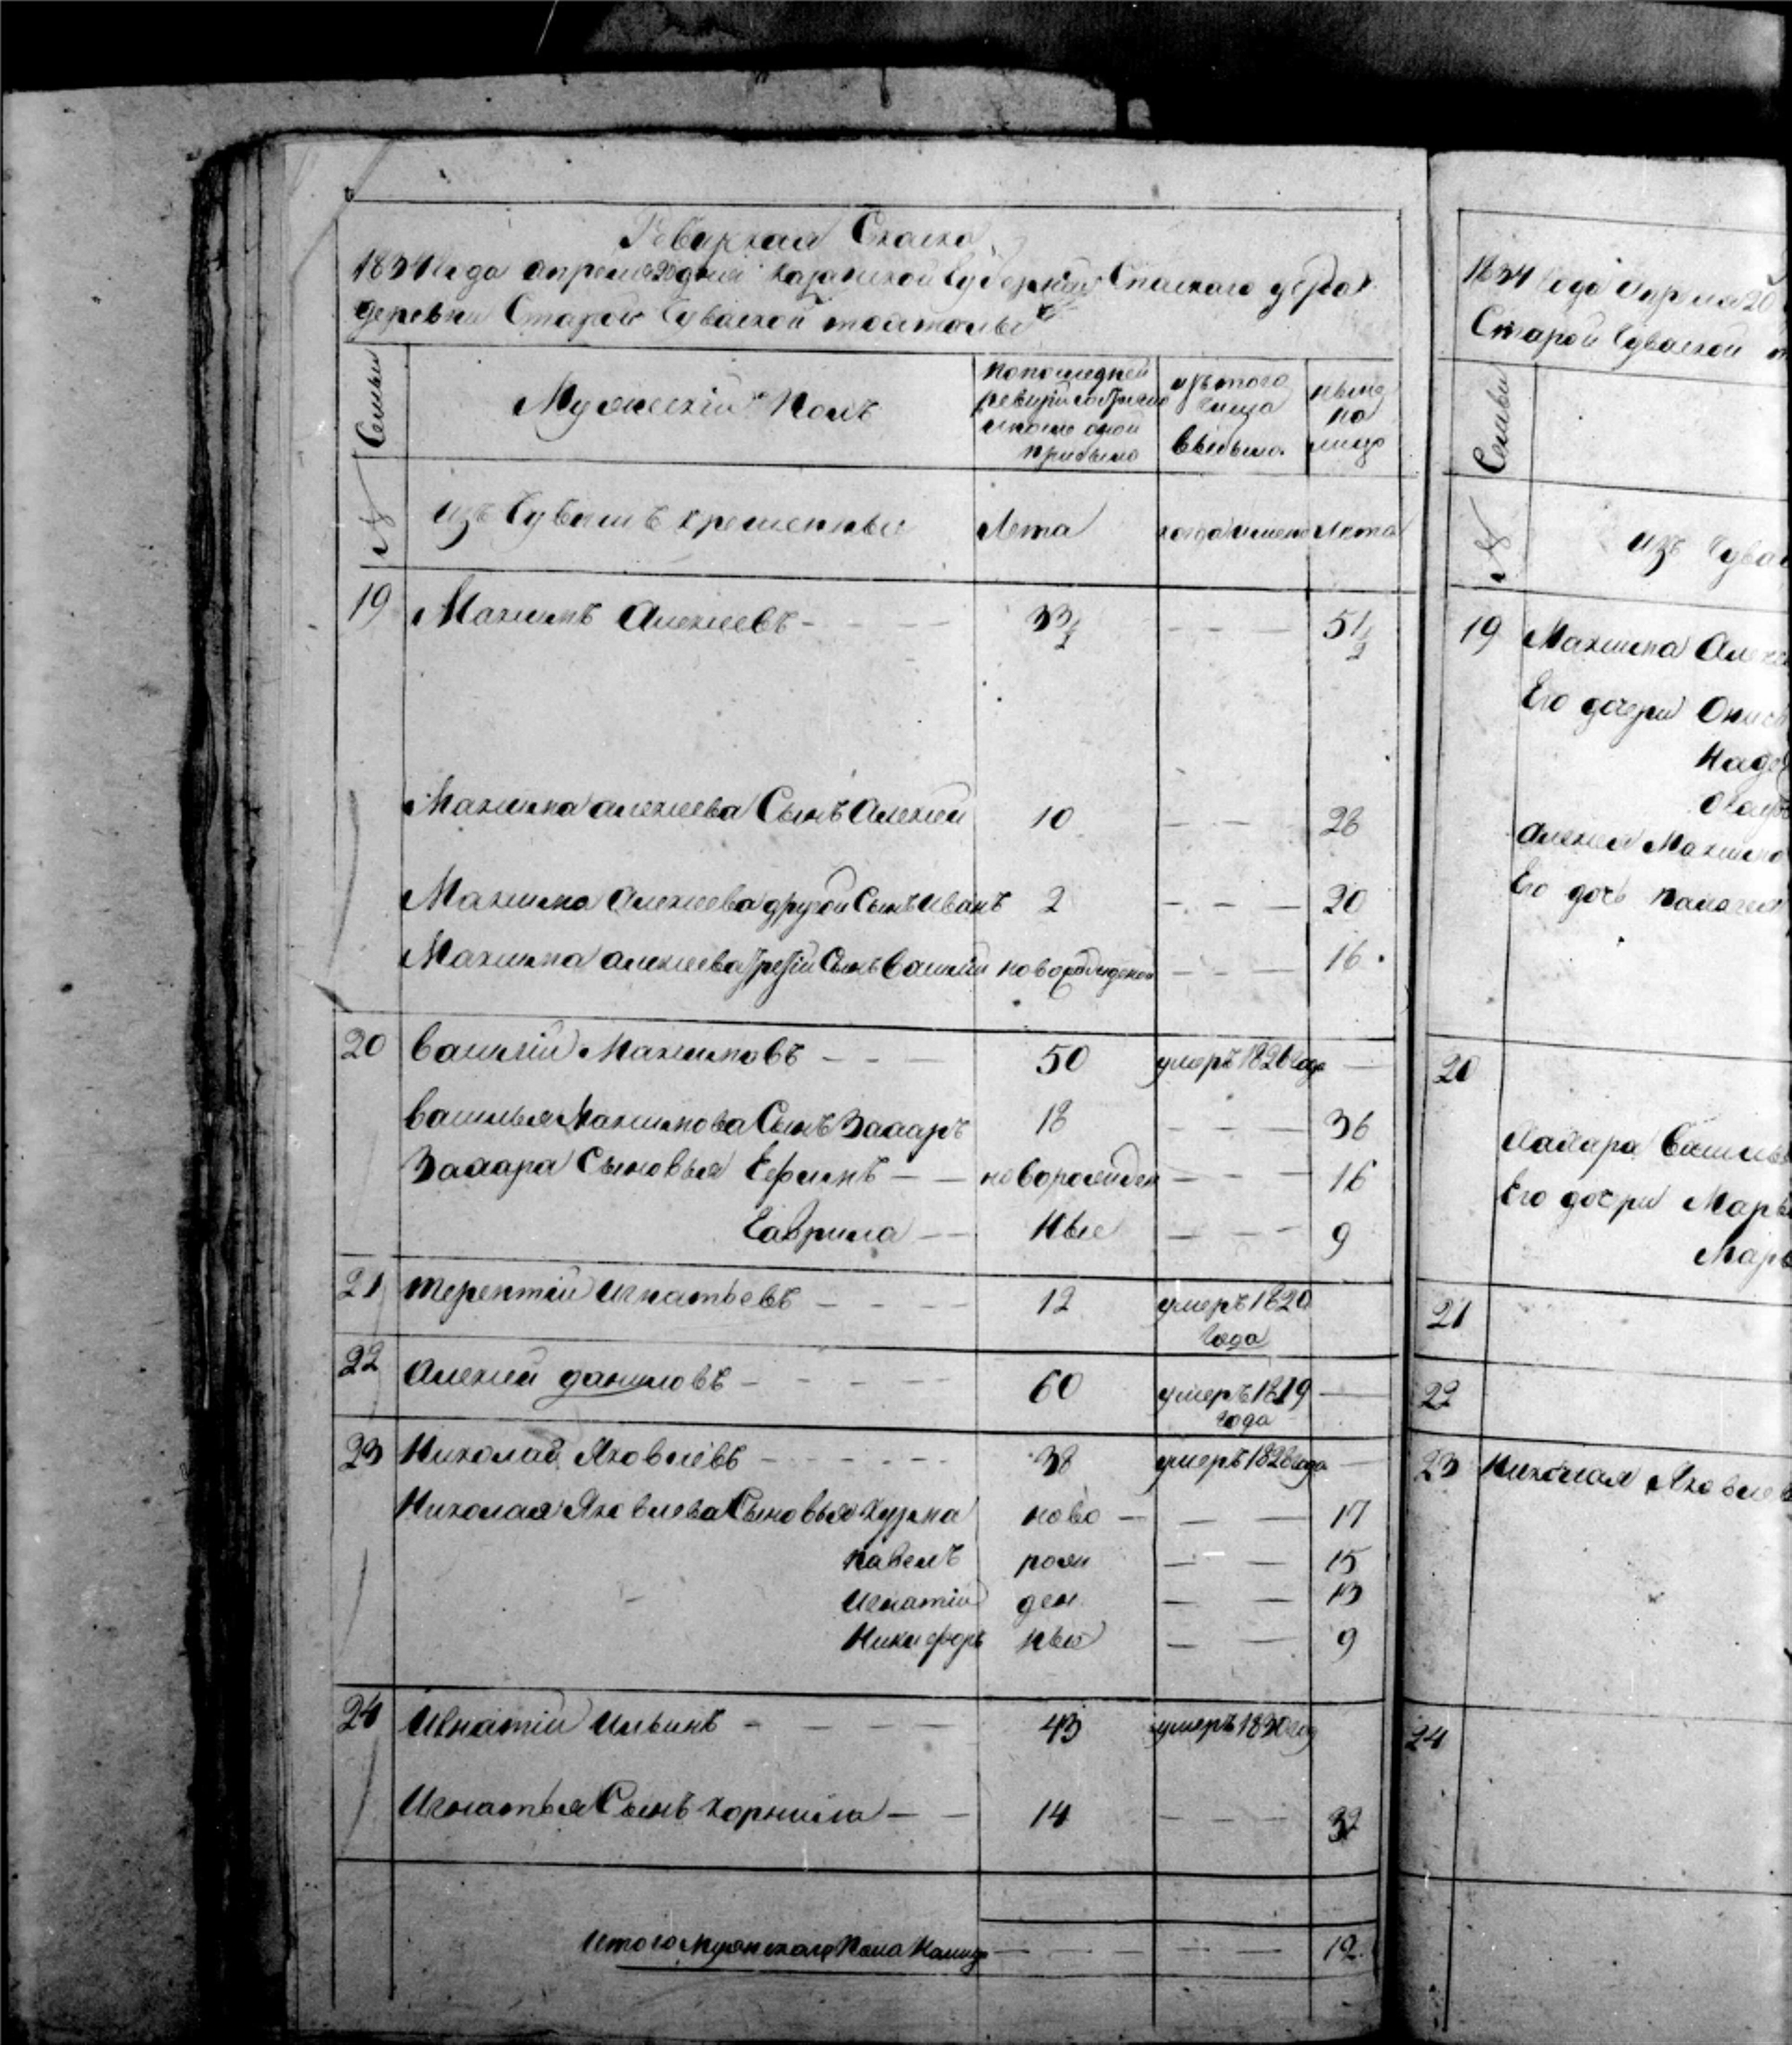 Ревизская Сказка
1834 года апреля 20 дня казанской губернии Спаского уезда
деревни Старой Чуваской толкиш
Семьи
Мужеский Полъ
по последней
ревизии состояло
и после оной
прибыло
изъ того
числа
выбыло
ныне
на
лицо
№
изъ Чувашъ крещеныхъ
Лета
когда именно
Лета
19 Максимъ Алексеевъ - 33 1/2 - - - 51 1/2
Максима алексеева Сынъ Алексей 10 - - - 28
Максима Алексеева другой Сынъ Иванъ 2 - - - 20
Максима алексеева третiй Сынъ Василiй новорожденой - - - 16
20 Василiй Максимовъ - - 50 умеръ 1826 года -
Василья Максимова Сынъ Захаръ 18 - - - 36
Захара Сыновья Ефимъ - - новорожден - - - 16
Гаврила - - ные - - - 9
21 терентiй Игнатьевъ - - - 12 умеръ 1820
года
22 Алексей даниловъ - - - - 60 умеръ 1819 -
года
23 Николай Яковлевъ - - - - - 38 умеръ 1828 года -
Николая Яковлева Сыновья Кузма ново - - - 17
павелъ рож - - 15
Игнатiй ден - - 13
Никифоръ ные - - 9
24 Игнатiй Ильинъ - - - - 43 умеръ 1830 год
Игнатья Сынъ корнила - - 14 - - - 32
Итого мужескаго Пола Налицо - - - - - - 12
1834 года апреля 20
Старой Чуваской
Семьи
№
изъ Чува
19 Максима Алекс
Его дочери Онис
Над
Алексея Максимо
Его дочь Пелагея
20
Захара Василье
Его дочери Марь
Марь
21
22
23 Николая Яковлев
24